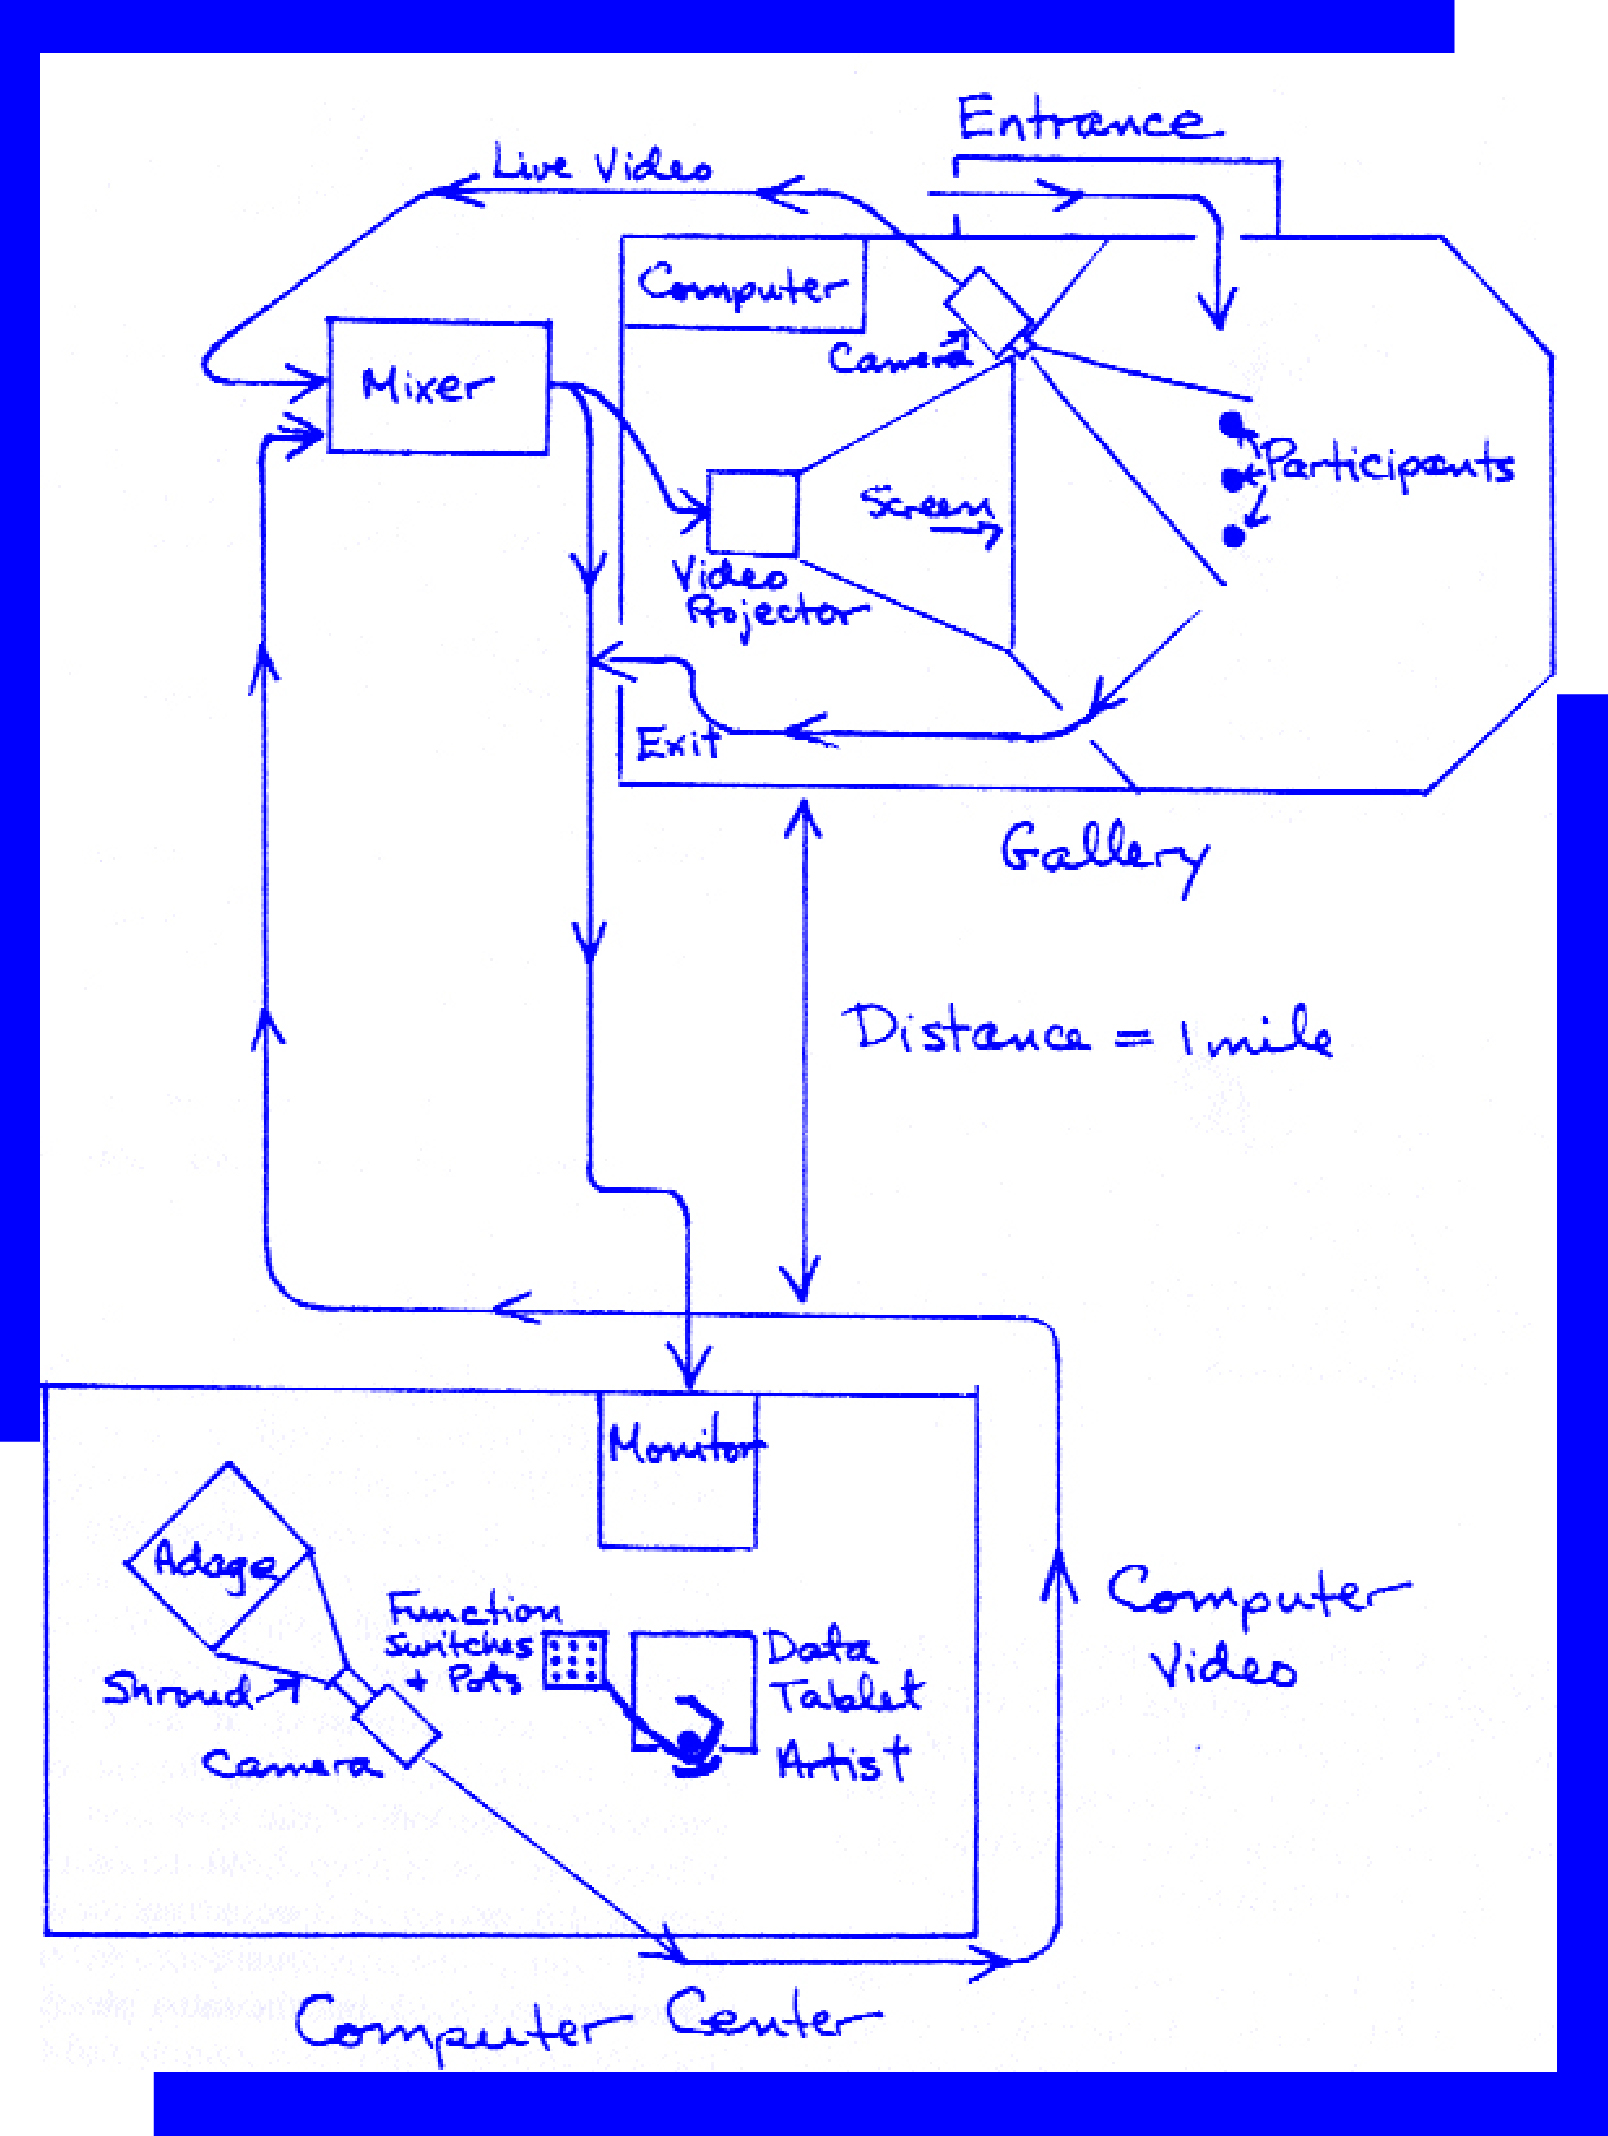 Entrance
Live Video
Computer
Camera
Mixer
Participants
Screen
Video
Projector
Exit
Gallery
Distance = 1 mile
Monitor
Adage
Function
Switches
+ Pots
Data
Tablet
Artist
Shroud
Camera
Computer
Video
Computer Center